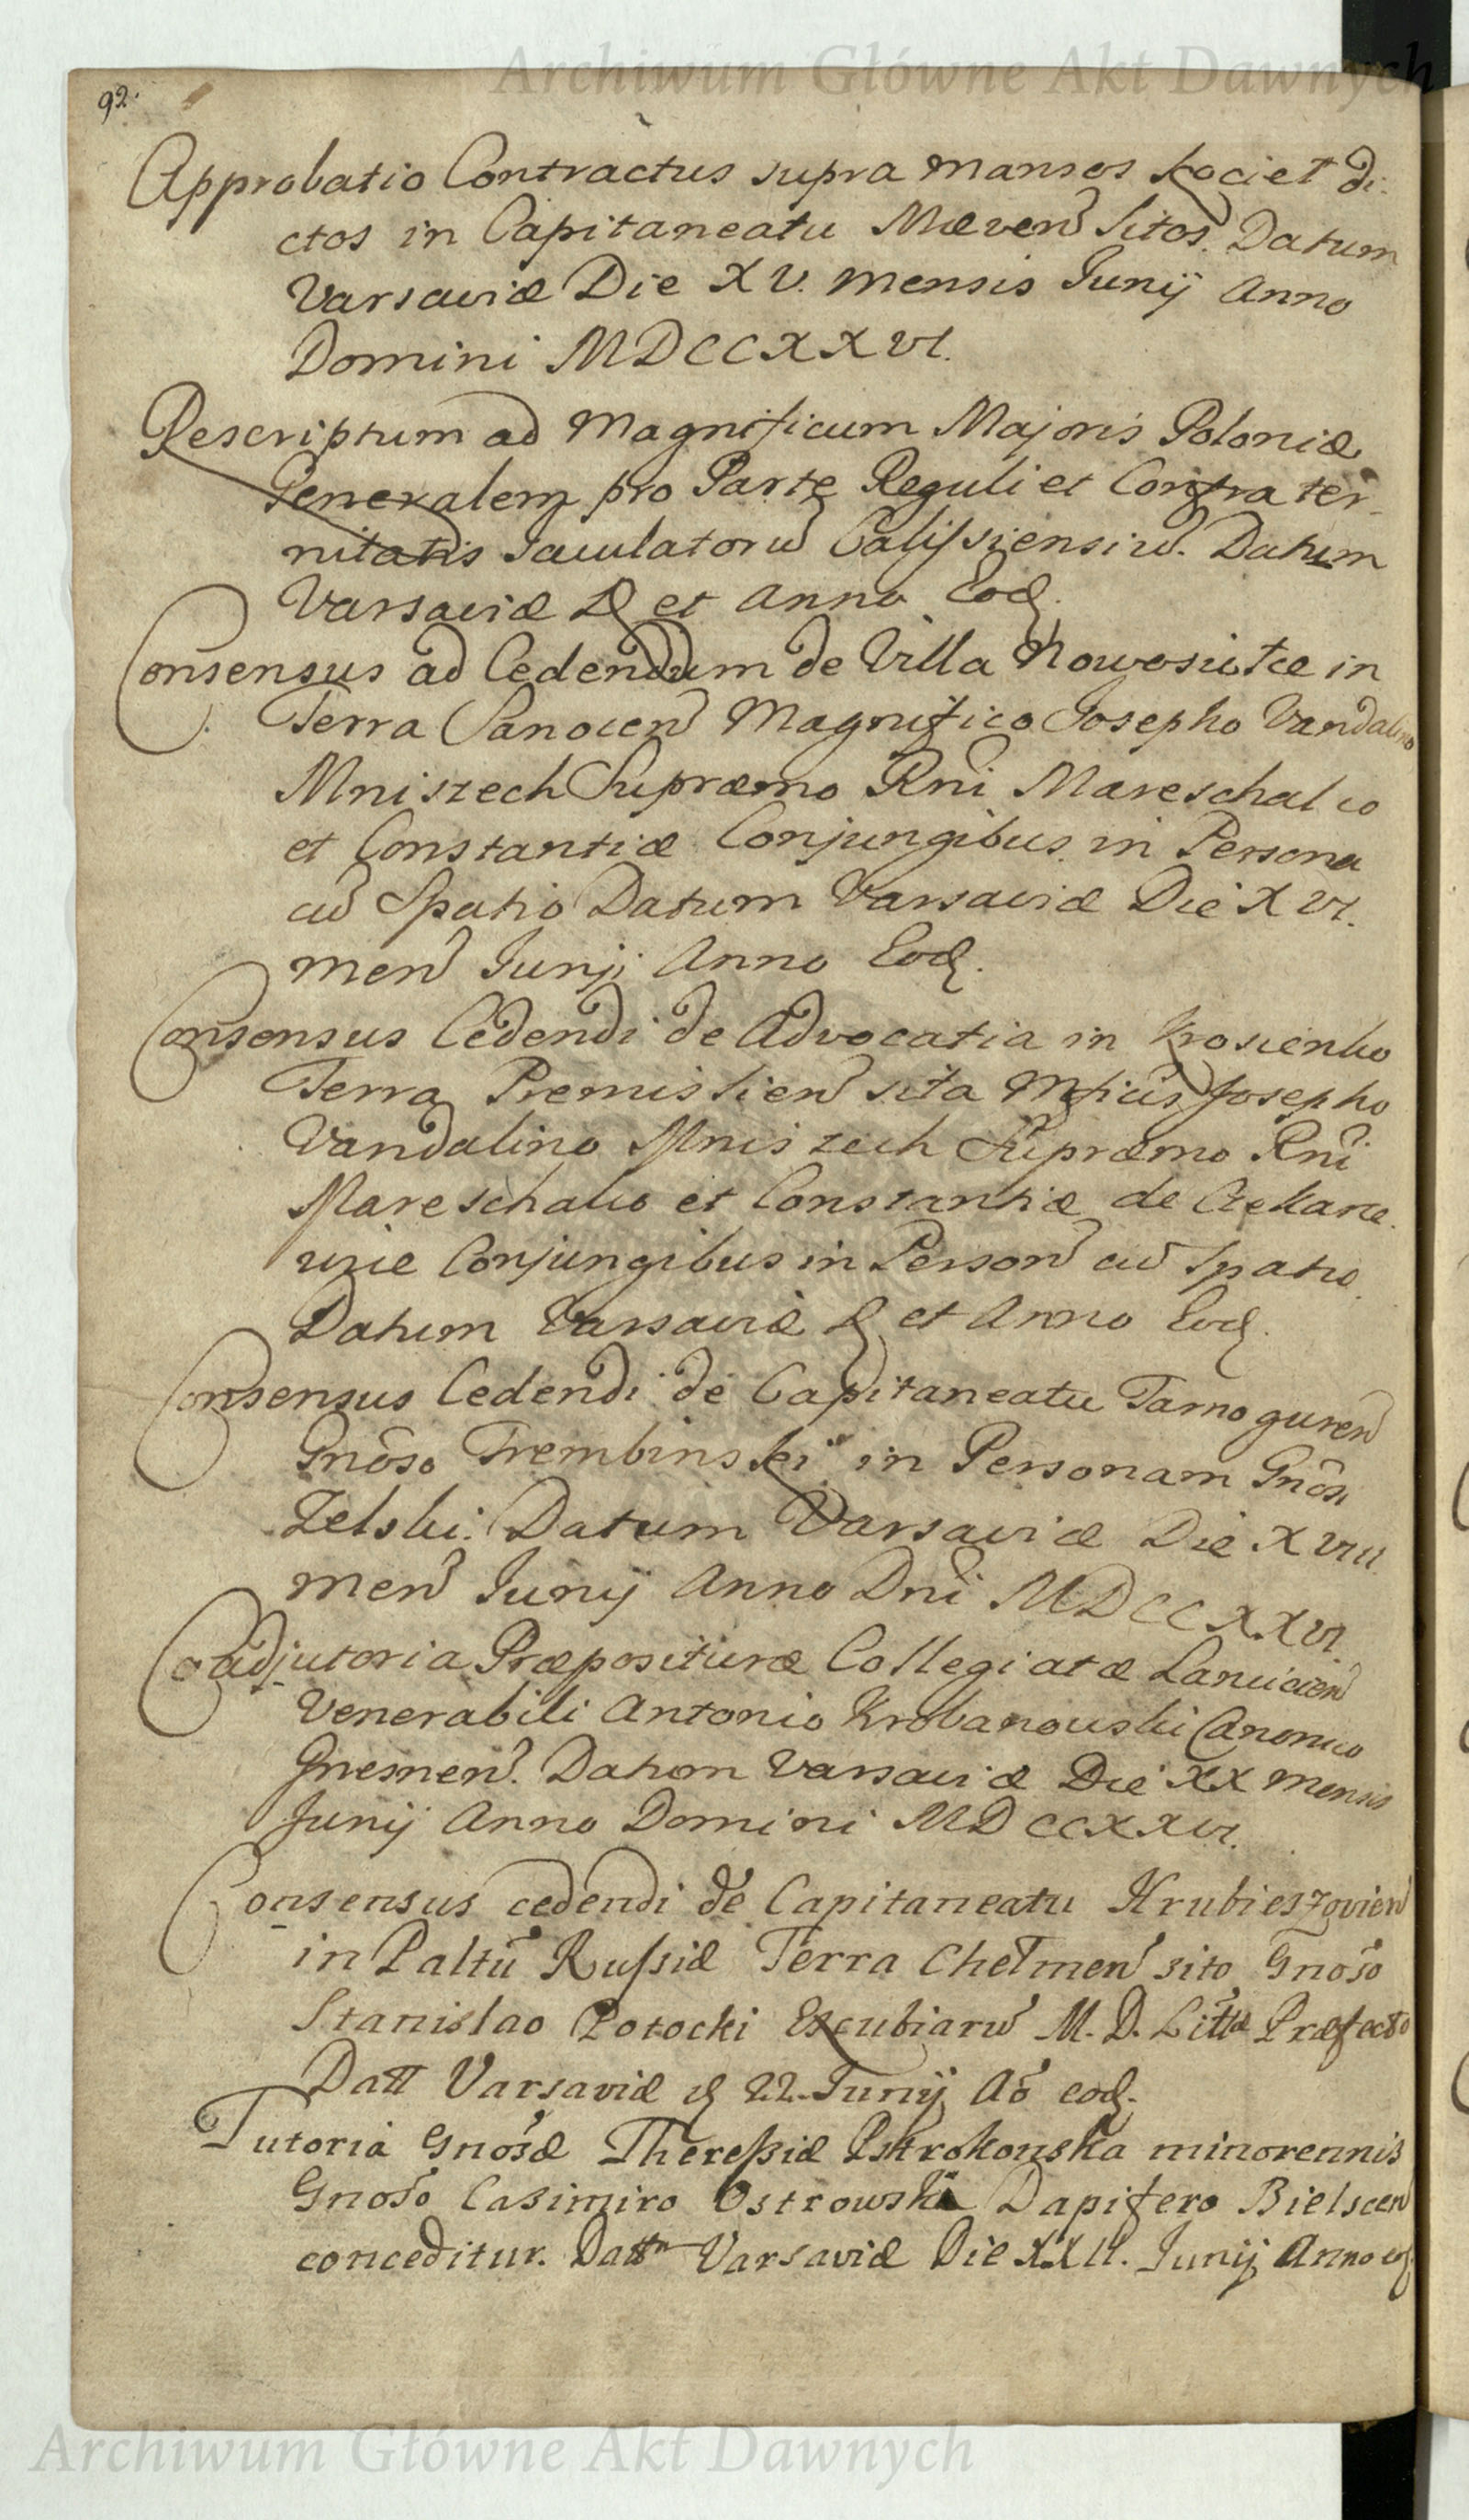 Archiwum Główne Akt Dawnych
92.
Approbatio Contractus supra mansos Kociet di-
ctos in Capitaneatu Mæven Sitos. Datum
Varsaviæ Die XV. mensis Junij Anno
Domini MDCCXXVI.
Rescriptum ad Magnificum Majoris Poloniæ
Generalem pro Parte Reguli et Confrater-
nitatis Jaculatoru Calissiensiu. Datum
Varsaviæ D et Anno Eod.
Consensus ad Cedendum de Villa Nowosiolce in
Terra Sanocen Magnifico Josepho Vandalino
Mniszech Supræmo Rni Mareschalco
et Constantiæ Conjungibus in Persona
cu Spatio Datum Varsaviæ Die XVI.
men Junij Anno Eod.
Consensus Cedendi de Advocatia in Krosienko
Terra Premislien sita Mficis Josepho
Vandalino Mniszech Supræmo Rni
Mareschalco et Constantiæ de
Conjungibus in Person cu Spatio.
Datum Varsaviæ D et Anno Eod.
Consensus Cedendi de Capitaneatu Tarnoguren
Gnoso Trembinski in Personam Gnosi
Zelski. Datum Varsaviæ Die XVIII
men Junij Anno Dni MDCCXXVI.
Coadjutoria Præpositurae Collegiatæ Lancicien
Venerabili Antonio Krobanowski Canonico
Gnesnen. Datum Varsaviæ Die XX mensis
Junij Anno Domini MDCCXXVI.
Consensus cedendi de Capitaneatu Hrubieszovien
in Paltu Russiæ Terra Chelmen sito Gnoso
Stanislao Potocki Excubiaru M. D. Littæ Præfecto
Datt Varsaviæ d 22 Junij Ao eod.
Tutoria Gnosæ Theressiæ Pstrokonska minorennis
Gnoso Casimiro Ostrowski Dapifero Bielscen
conceditur. Dattm Varsaviæ Die XXII. Junij Anno eod
Archiwum Główne Akt Dawnych